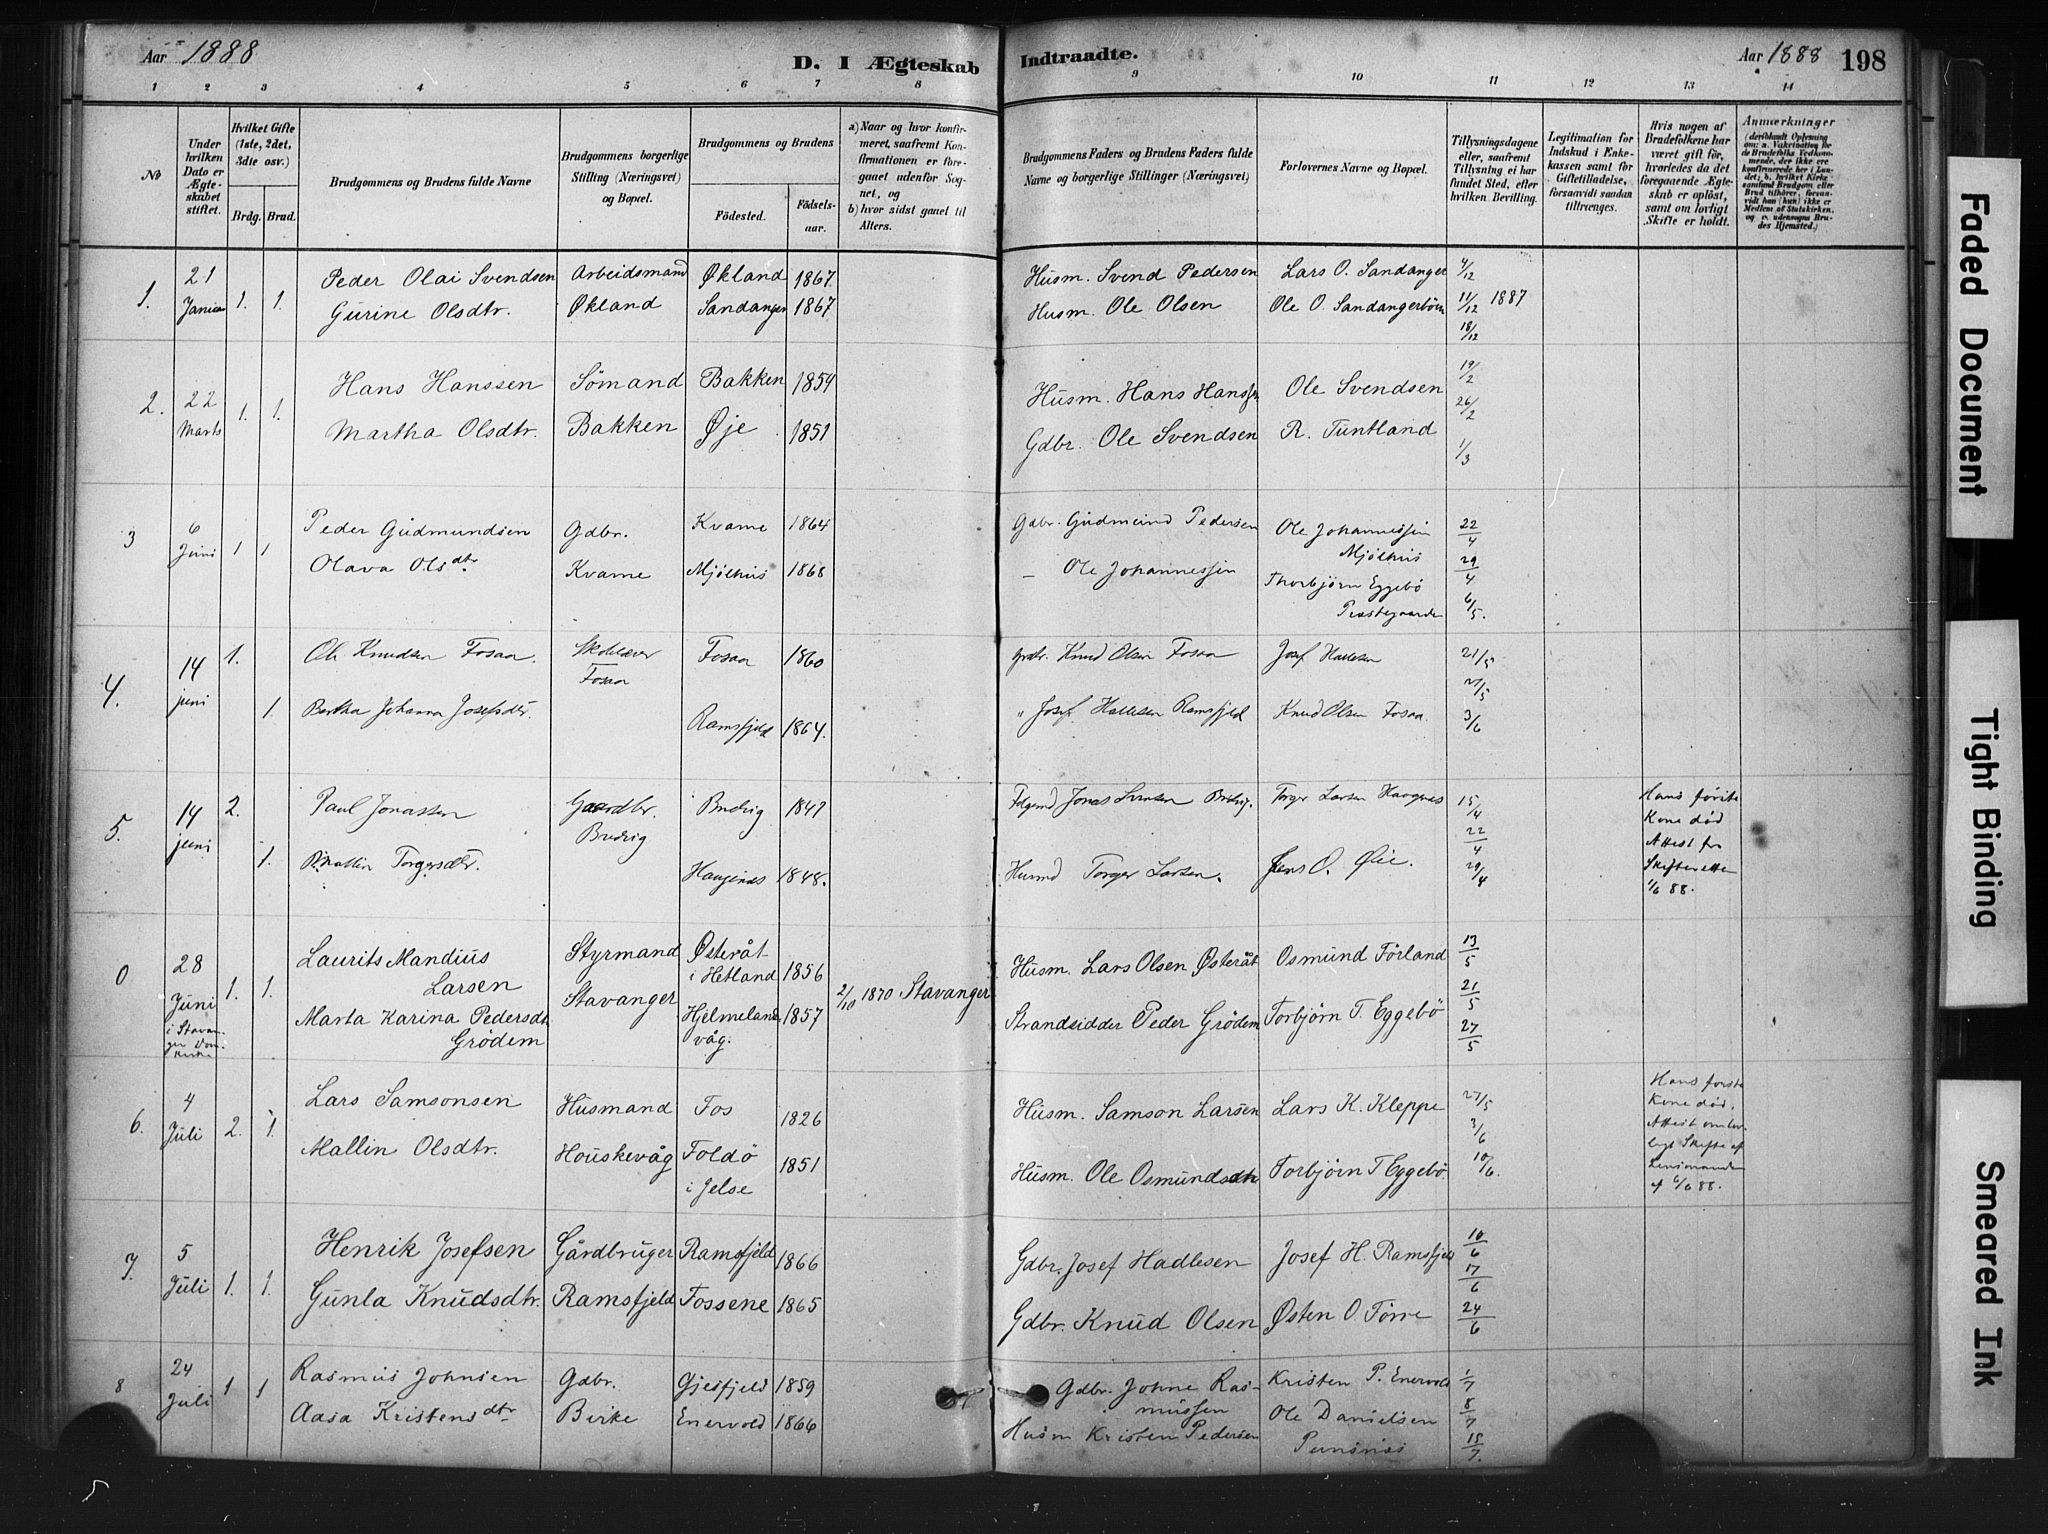 Aar 1888
D. I Ægteskab
Indtraadte.
Aar 1888 198
1 2 3 4 5 6 7 8 9 10 11 12 13 14
No
Under hvilken Dato er Ægteskabet stiftet.
Hvilket Gifte (1ste, 2det, 3die osv.)
Brdg. Brud.
Brudgommens og Brudens fulde Navne
Brudgommens borgerlige Stilling (Næringsvei) og Bopæl.
Brudgommens og Brudens
Fødested.
Fødselsaar.
a) Naar og hvor konfirmeret, saafremt Konfirmationen er foregaaet udenfor Sognet, og
b) hvor sidst gaaet til Alters.
Brudgommens Faders og Brudens Faders fulde Navne og borgerlige Stillinger (Næringsvei)
Forlovernes Navne og Bopæl.
Tillysningsdagene eller, saafremt Tillysning ei har fundet Sted, efter hvilken Bevilling.
Legitimation for Indskud i Enkekassen samt for Giftetilladelse, forsaavidt saadan tiltrænges.
Hvis nogen af Brudefolkene har været gift før, hvorledes da det foregaaende Ægteskab er opløst, samt om lovligt Skifte er holdt.
Anmærkninger
1. 21 1. 1. Peder Olai Svendsen Arbeidsmand Økland 1867 Husm. Svend Pedersen Lars O. Sandanger 4/12
Gurine Olsdtr. Økland Sandanger 1867 Husm. Ole Olsen Ole O. Sandangerbøen 11/12 1887
18/12
2. 22 Marts 1. 1. Hans Hanssen Sømand Bakken 1854 Husm. Hans Hanssen Ole Svendsen 19/2
26/2
Martha Olsdtr. Bakken Øje 1851 Gdbr. Ole Svendsen R. Tuntland
1/3
3 6 Juni 1 1 Peder Gudmundsen Gdbr. Kvame 1864 Gdbr. Gudmund Pedersen Ole Johannessen 22/4
Mjølhus
Olava Olsdtr Kvame Mjølhus 1868 – Ole Johannessen 29/4
Thorbjørn Eggebø 6/5.
4. 14 juni 1. Ole Knudsen Fosaa. Fosaa 1860 Knud Olsen Fosaa Josef Hallesen 21/5
Fosaa
27/5
1. Bertha Johanna Josefsdtr. Ramsfjeld 1864. " Josef Hallesen Ramsfjeld Knud Olsen Fosaa. 3/6
5. 14 juni 2. Paul Jonassen Gaardbr. 1847 Torger Larsen 15/4 Hans første
Kone død
22/4 Attest fra
1. Torgersdtr. 1848. Torger Larsen. Jens O. Øie. 29/4 Skifteretten
1/6 88.
0 28 Juni 1. 1. Laurits Mandius Styrmand Østeråt Husm. Lars Olsen Østeråt Osmund Førland 13/5
Larsen i Hetland 1856
i Stavanger Domkirke Marta Karina Pedersdtr Stavanger Hjelmelands 1857 2/10 1870 Stavanger Strandsidder Peder Grødem Torbjørn T. Eggebø 21/5
Grødem våg. 27/5
6. 4 Juli 2. 1. Lars Samsonsen Husmand Fos 1826 Husm. Samson Larsen Lars K. Kleppe 27/5 Hans første
Kone død.
3/6 Attest om lov-
ligt Skifte af
Mallin Olsdtr. Houskevåg Foldø 1851 Husm. Ole Osmundsen Torbjørn T Eggebø. 10/6. Lensmanden
i Jelse af 6/6 88.
7. 5 Juli 1. 1. Henrik Josefsen Gårdbruger Ramsfjeld 1866 Gdbr. Josef Hadlesen Josef H. Ramsfjeld 10/6
17/6
Gunla Knudsdtr. Ramsfjeld Fossene 1865 Gdbr. Knud Olsen Østen O Tørre 24/6
8 24 Juli 1 1 Rasmus Johnsen Gdbr. Gjesfjeld 1859 Gdbr. Johne Ras- Kristen P. Enervold 1/7
mussen
Aasa Kristensdtr Birke Enervold 1866 Husm Kristen Pedersen Ole Danielsen 8/7
15/7.
Faded Document
Tight Binding
Smeared Ink